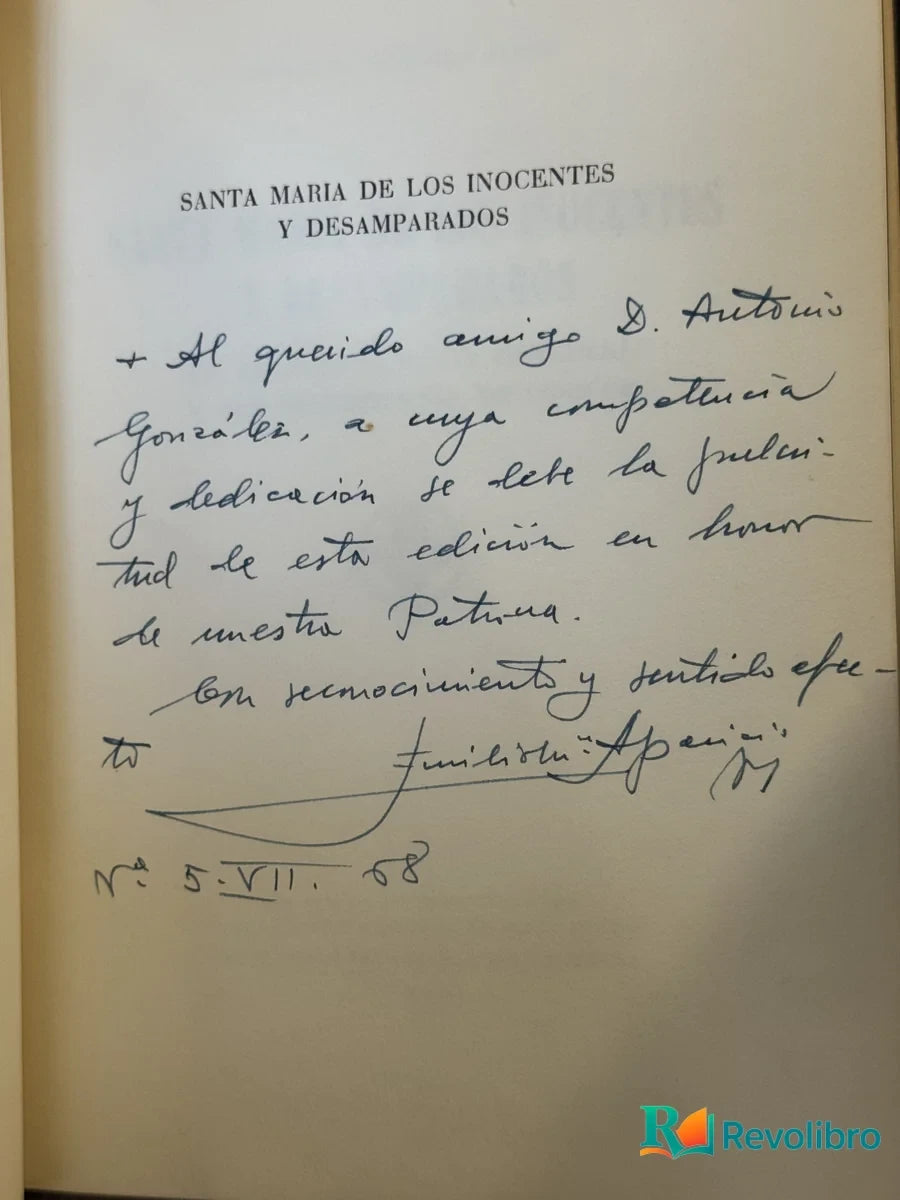 SANTA MARIA DE LOS INOCENTES
Y DESAMPARADOS
+ Al querido amigo D. Antonio
González, a cuya competencia
y dedicación se debe la pulcri-
tud de esta edición en honor
de nuestra Patrona.
Con reconocimiento y sentido afec-
to
Emilio Mª Aparicio
Vª. 5.VII.68
Revolibro